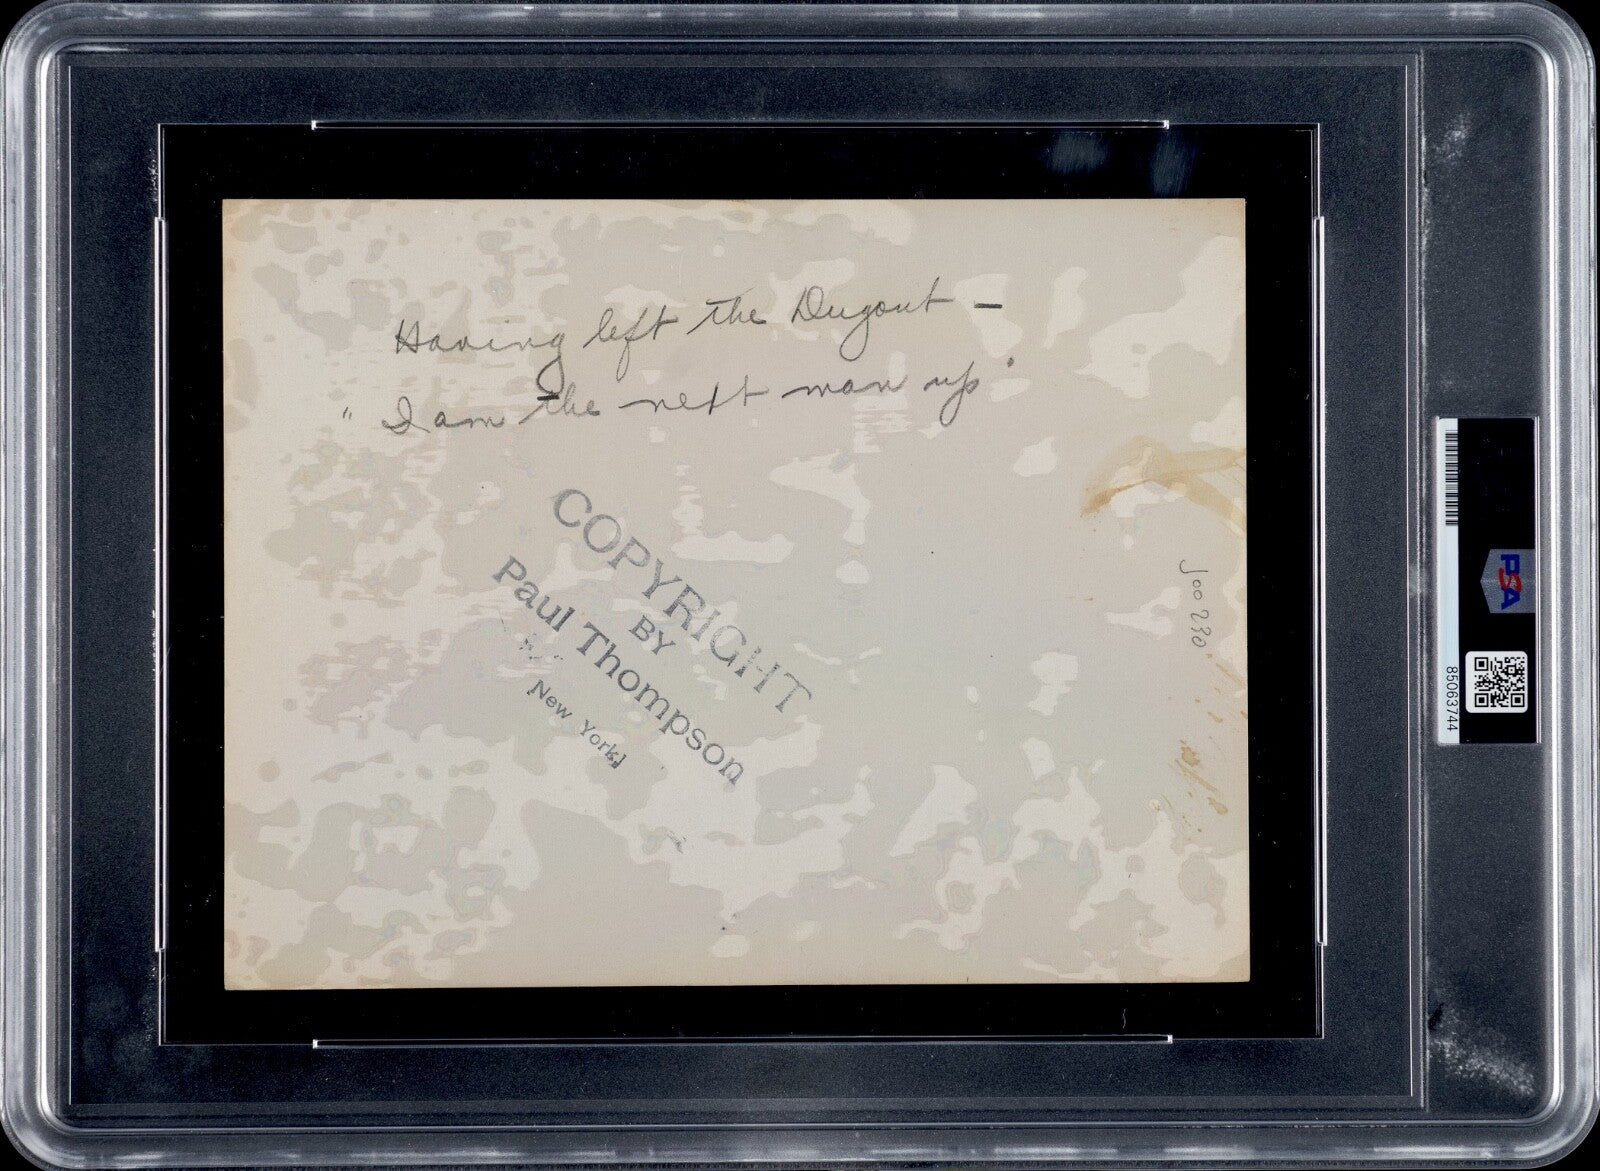 Having left the Dugout –
"I am the next man up"
COPYRIGHT
BY
Paul Thompson
New York
J00 230
PSA
85063744